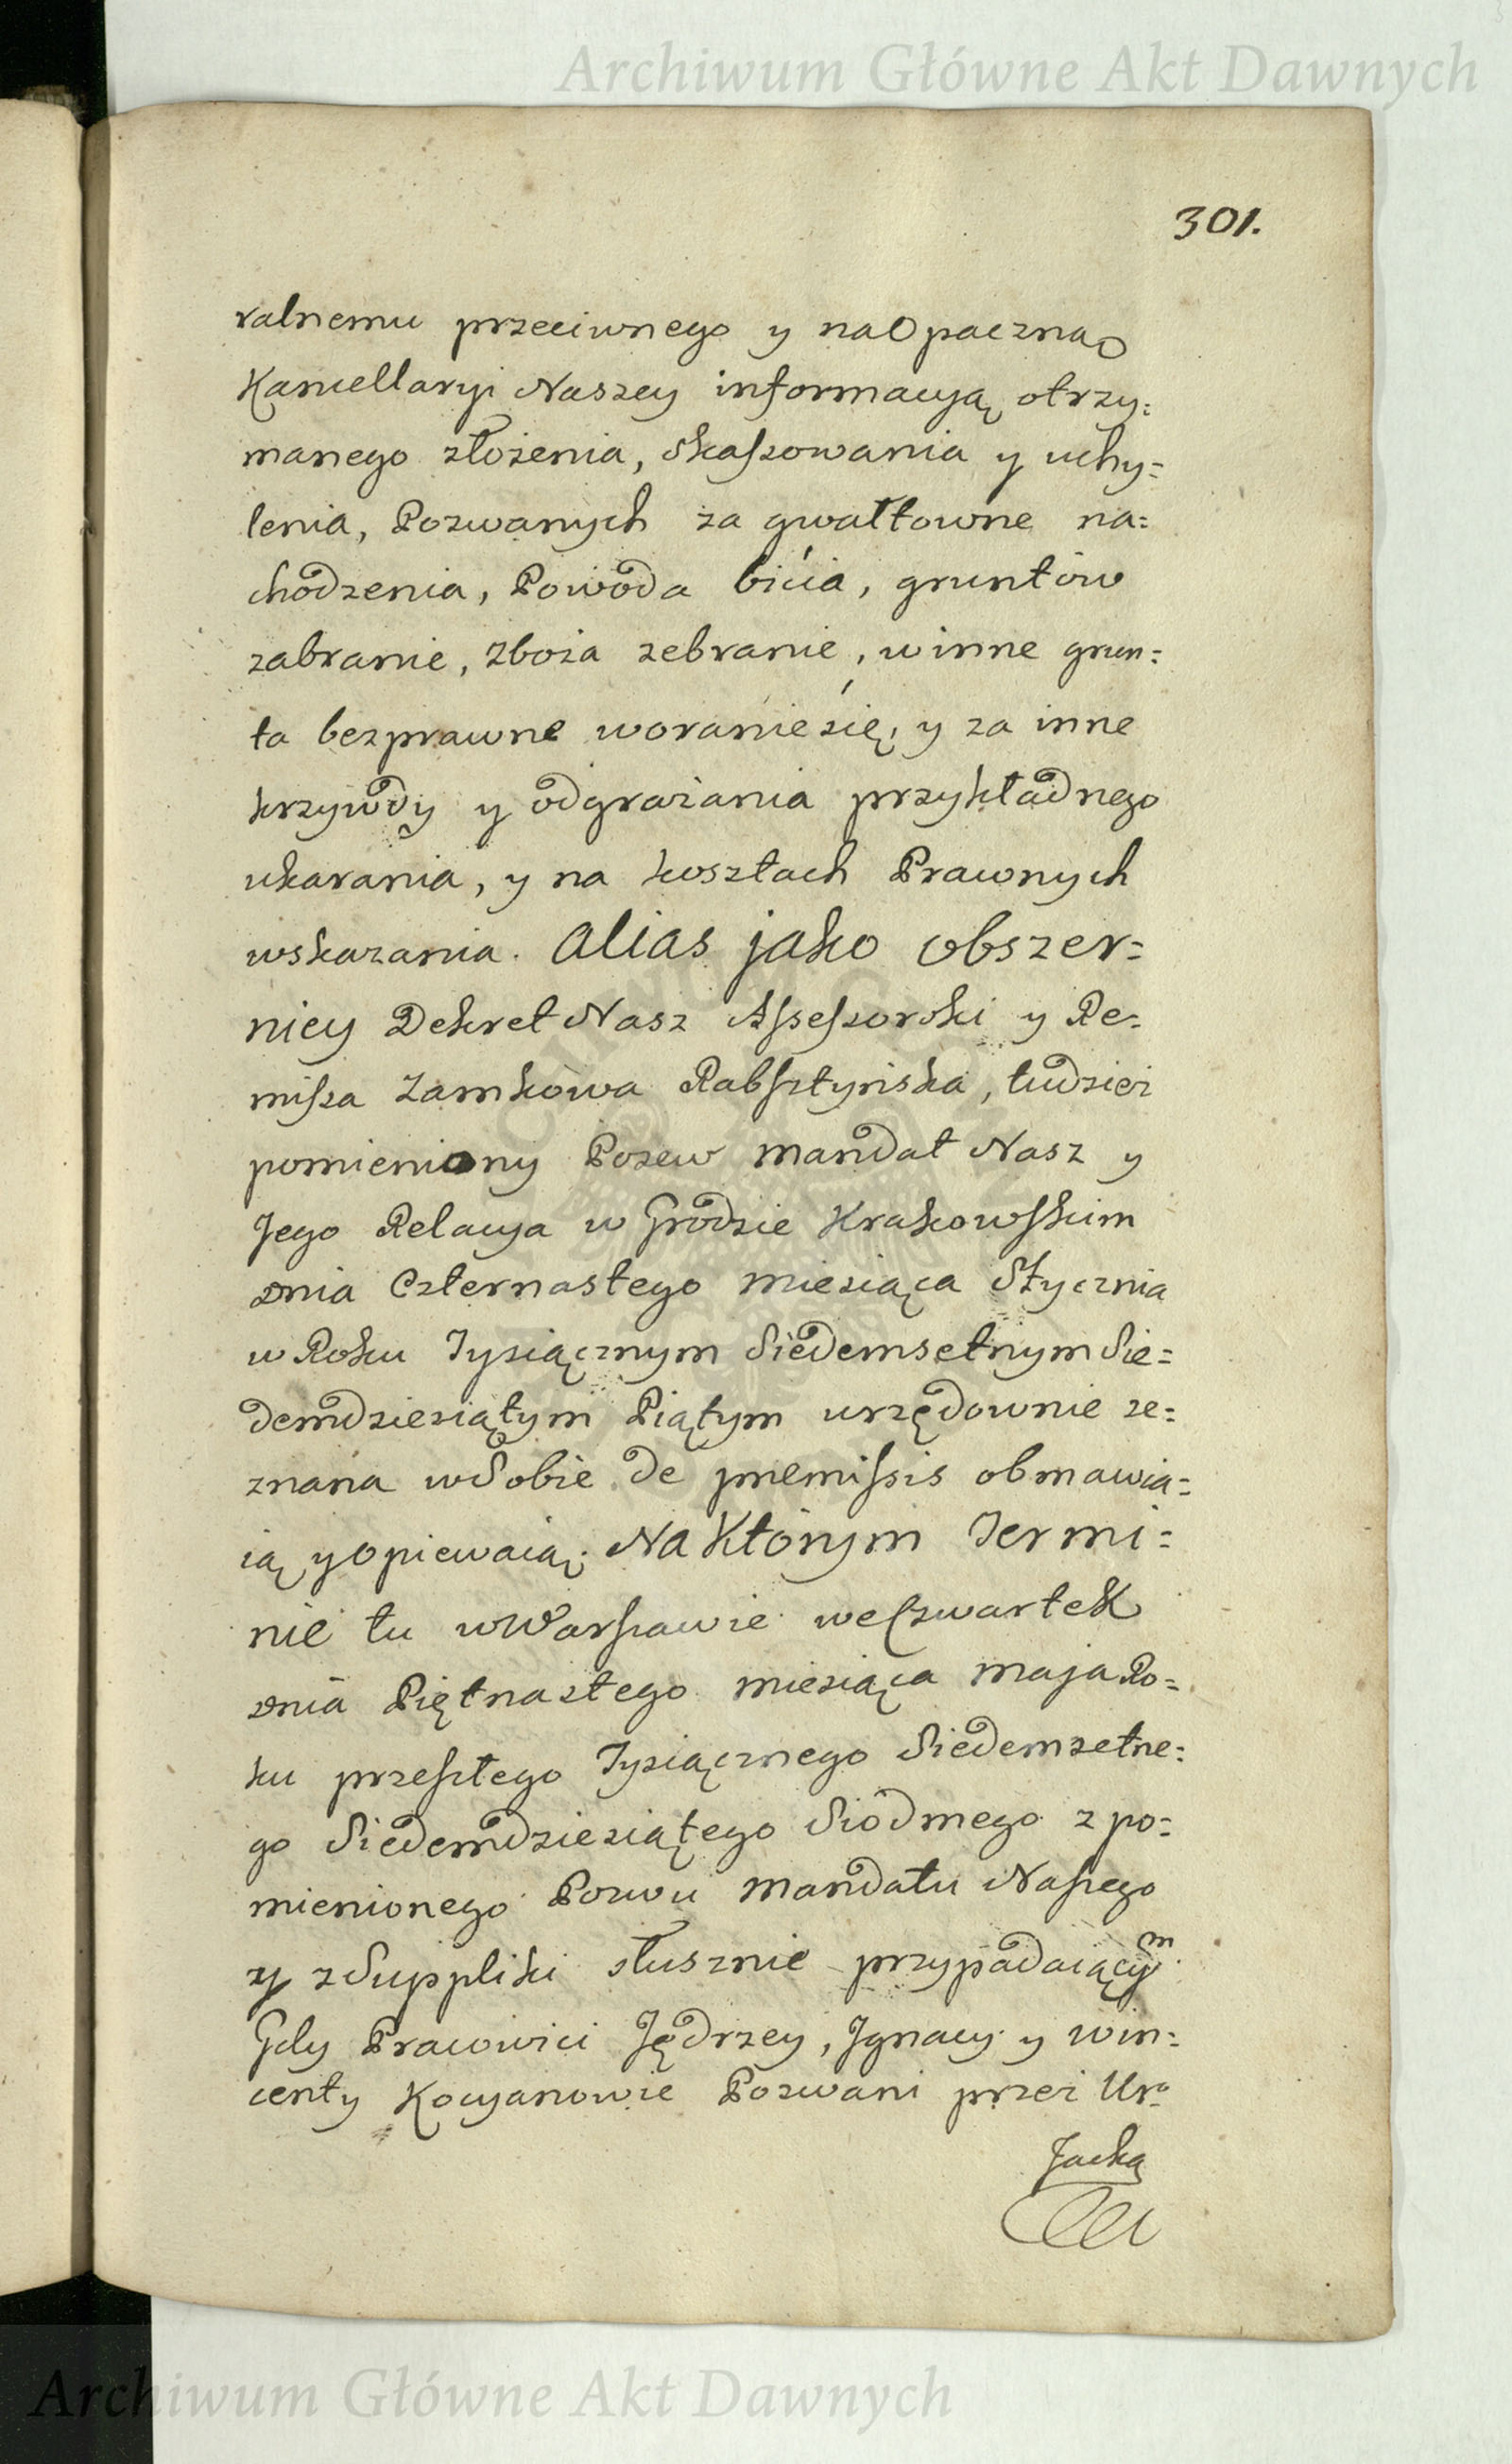 Archiwum Główne Akt Dawnych
301.
ralnemu przeciwnego y na Opaczną
Kancellaryi Naszey informacyą otrzy=
manego złożenia, skaſsowania y uchy=
lenia, Pozwanych za gwałtowne na=
chodzenia, Powoda bicia, gruntów
zabranie, zboża zebranie, w inne grun=
ta bezprawne woranie się, y za inne
krzywdy y odgrażania przykładnego
ukarania, y na kosztach Prawnych
wskazania. Alias jako obszer=
niey Dekret Nasz Aſseſsorski y Re=
miſsa Zamkowa Rabſztyńska, tudzież
pomieniony Pozew Mandat Nasz y
Jego Relacya w Grodzie Krakowſkim
dnia Czternastego miesiąca Stycznia
w Roku Tysiącznym Siedemsetnym Sie=
demdziesiątym Piątym urzędownie ze=
znana w Sobie de premiſsis obmawia=
ią y opiewaią. Na Którym Termi=
nie tu w Warſzawie we Czwartek
dnia Piętnastego miesiąca Maja Ro=
ku przeſzłego Tysiącznego Siedemsetne=
go Siedemdziesiątego Siódmego z po=
mienionego Pozwu Mandatu Naſzego
y z Suppliki słusznie przypadaiącym
Gdy Pracowici Jędrzey, Ignacy y Win=
centy Kocyanowie Pozwani przez Ur:
Jacka
Archiwum Główne Akt Dawnych